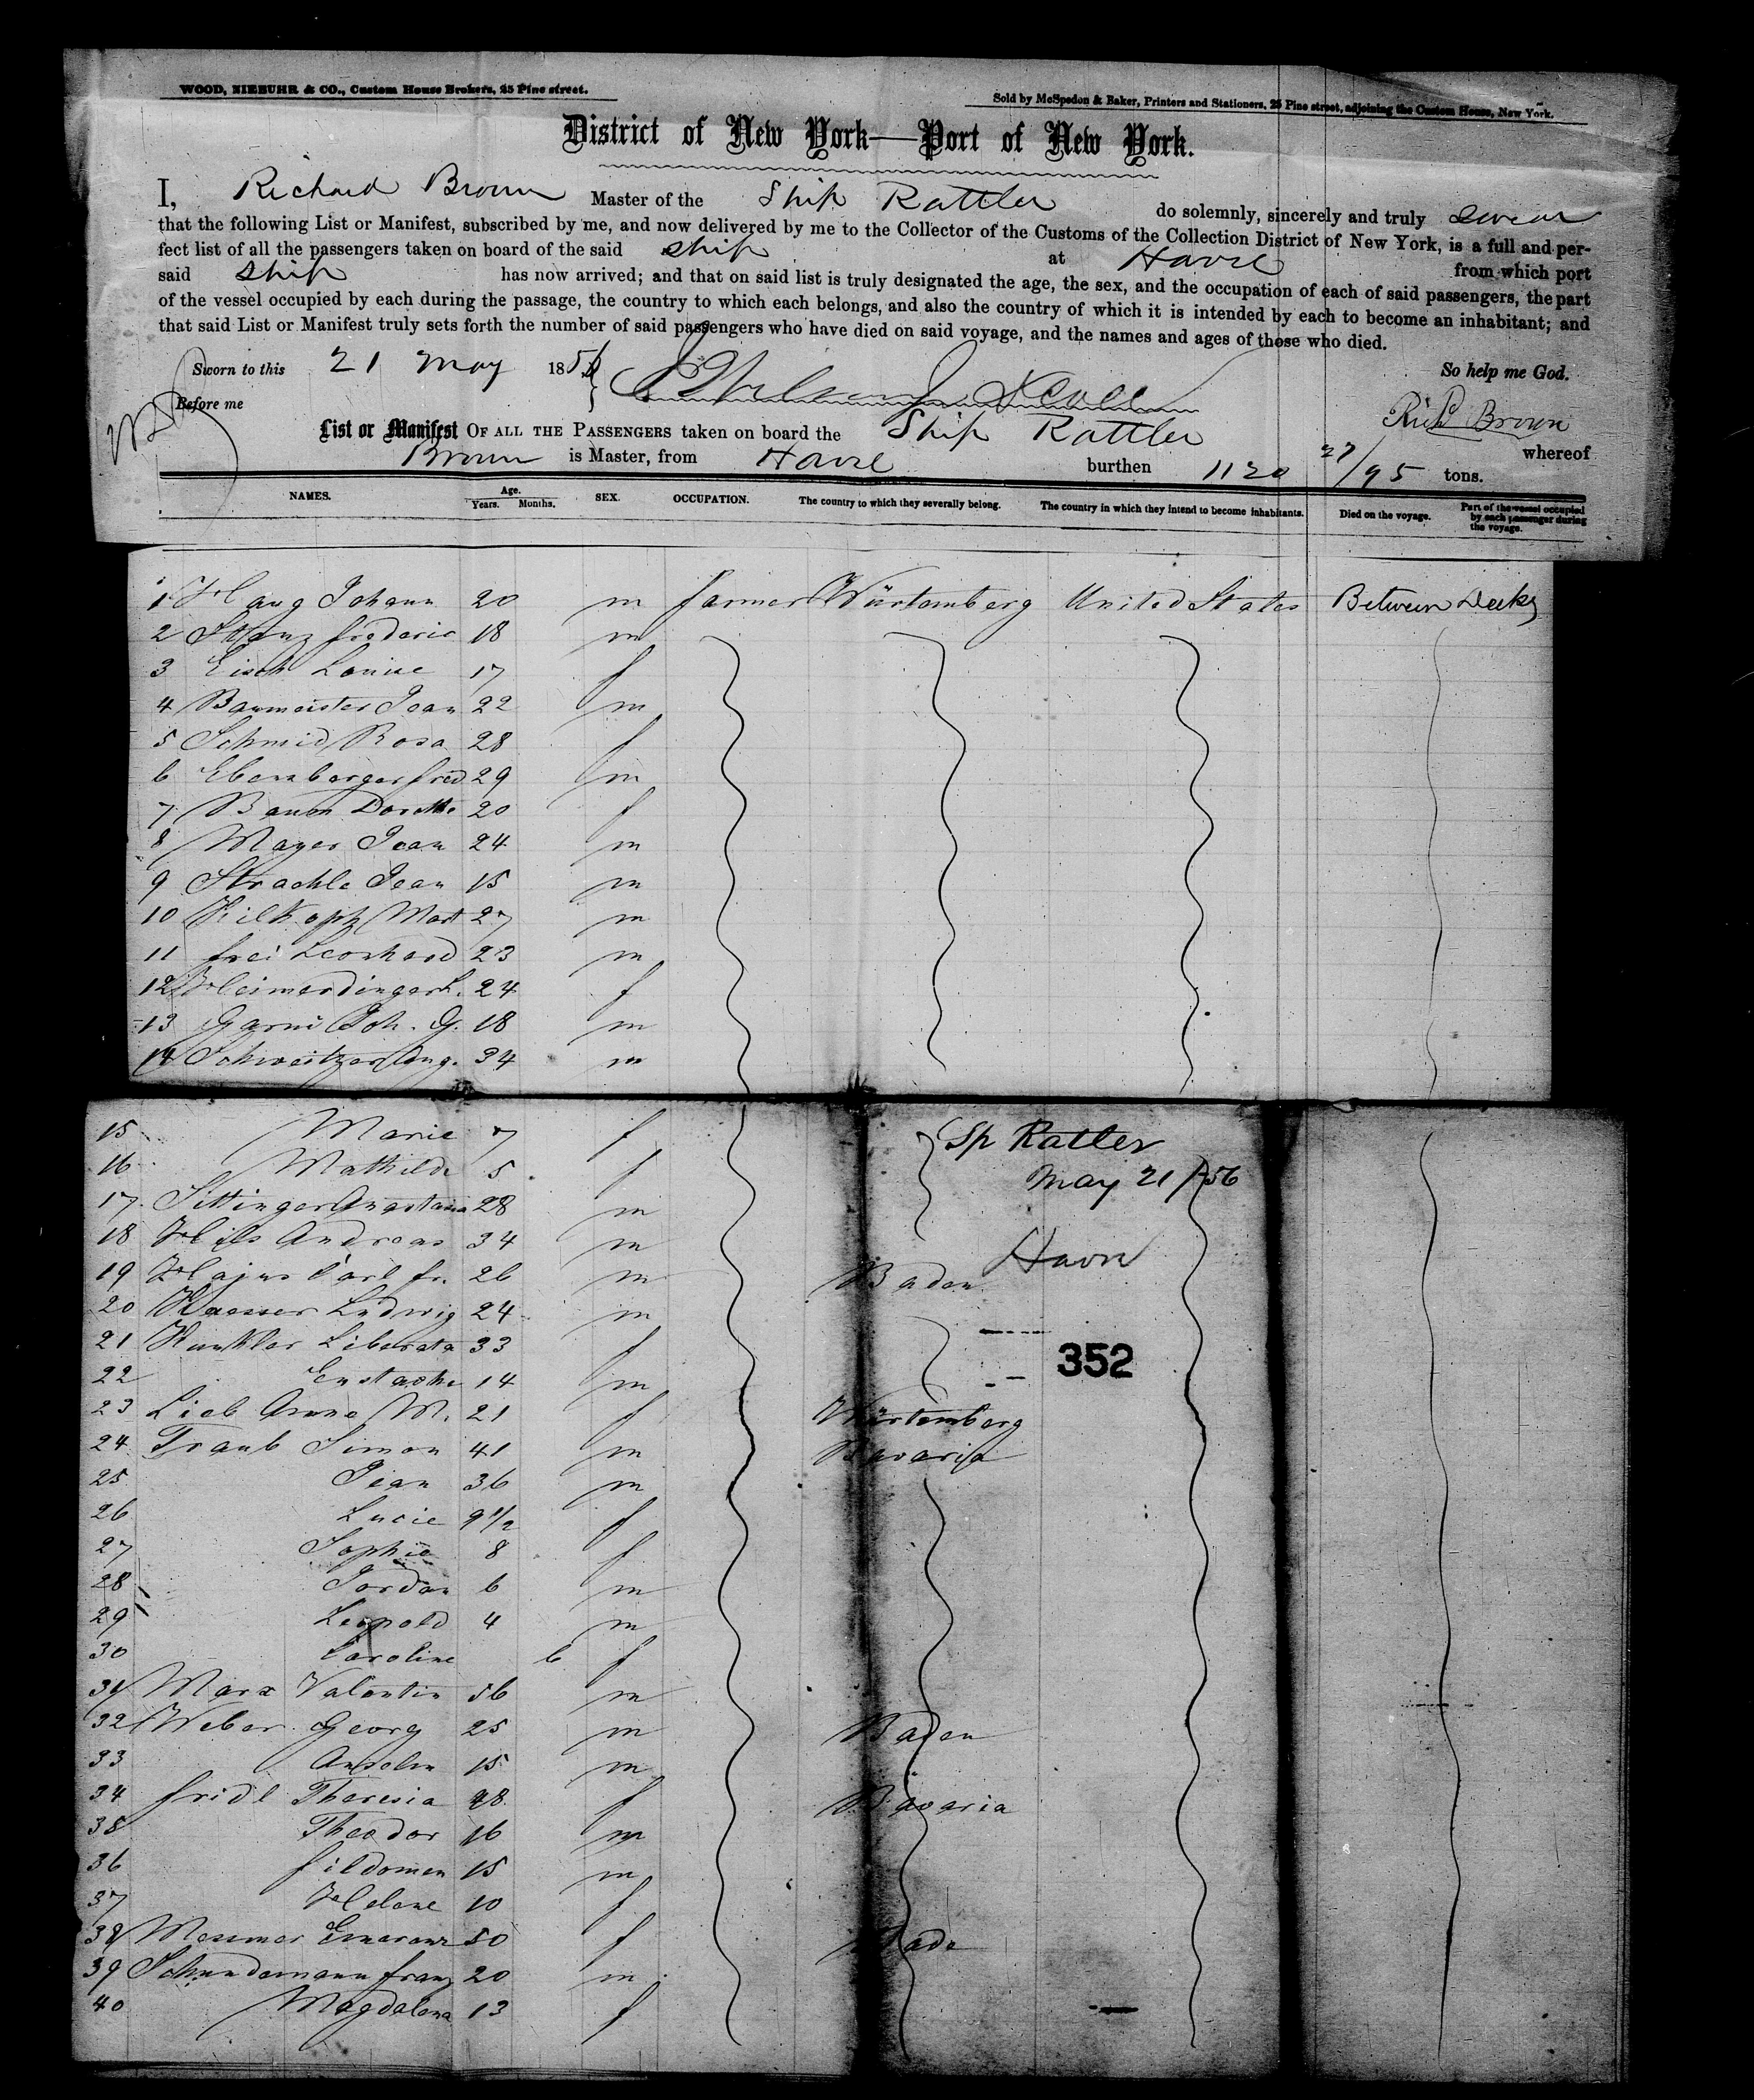 WOOD, NIEBUHR & CO., Custom House Brokers, 25 Pine street.
Sold by McSpedon & Baker, Printers and Stationers, 25 Pine street, adjoining the Custom House, New York.
District of New York—Port of New York.
I, Richard Brown Master of the Ship Rattler do solemnly, sincerely and truly swear
that the following List or Manifest, subscribed by me, and now delivered by me to the Collector of the Customs of the Collection District of New York, is a full and per-
fect list of all the passengers taken on board of the said ship at Havre from which port
said ship has now arrived; and that on said list is truly designated the age, the sex, and the occupation of each of said passengers, the part
of the vessel occupied by each during the passage, the country to which each belongs, and also the country of which it is intended by each to become an inhabitant; and
that said List or Manifest truly sets forth the number of said passengers who have died on said voyage, and the names and ages of those who died.
Sworn to this 21 May 1856 So help me God.
Before me Richd Brown
List or Manifest OF ALL THE PASSENGERS taken on board the Ship Rattler whereof
Brown is Master, from Havre burthen 1120 27/95 tons.
NAMES. Age. Years. Months. SEX. OCCUPATION. The country to which they severally belong. The country in which they intend to become inhabitants. Died on the voyage. Part of the vessel occupied by each passenger during the voyage.
1 Haug Johann 20 m farmer Würtemberg United States Between Decks
2 frederic 18 m
3 Louise 17 f
4 Baumeister Jean 22 m
5 Schmid Rosa 28 f
6 Ebersberger fred 29 m
7 Dorothe 20 f
8 Mayer Jean 24 m
9 Strachle Jean 15 m
10 Mart 27 m
11 frei Leonhard 23 m
12 Heimerdinger L. 24 f
13 Joh. G. 18 m
14 Schweitzer Aug. 34 m
15 Marie 7 f
16 Mathilde 5 f
17 Sittinger Anastasia 28 m
18 Hils Andreas 34 m
19 Carl fr. 26 m Baden
20 Ludwig 24 m
21 Liberata 33 f
22 Eustache 14 m
23 Lieb Anna M. 21 f Würtemberg
24 Traub Simon 41 m Bavaria
25 Jean 36 m
26 Lucie 9 1/2 f
27 Sophie 8 f
28 Jordan 6 m
29 Leopold 4 m
30 Caroline 6 f
31 Marx Valentin 56 m
32 Weber Georg 25 m Baden
33 Anselm 15 m
34 fridl Theresia 48 f Bavaria
35 Theodor 16 m
36 fildomen 15 m
37 Helene 10 f
38 Messmer 50 f Bade
39 Schundemann franz 20 m
40 Magdalena 13 f
Sp Ratler
May 21/56
Havre
352